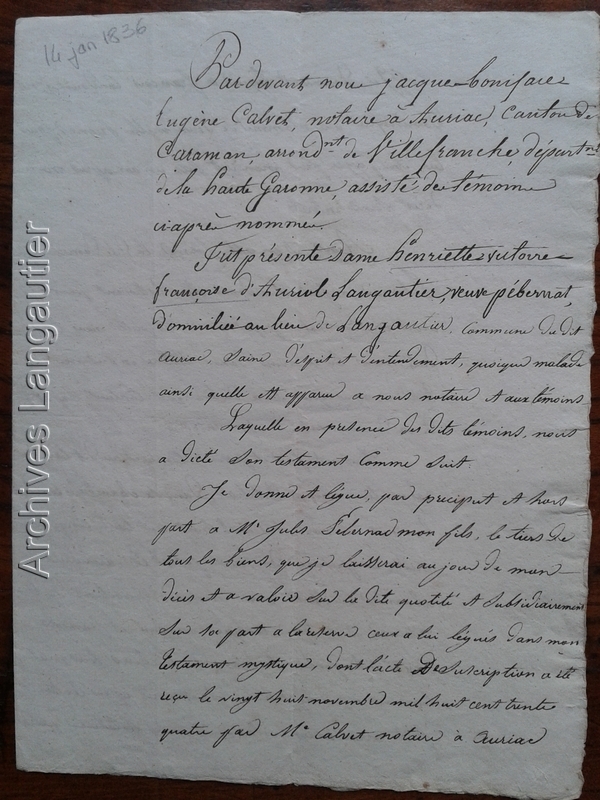 14 jan 1836
Par devant nous jacque boniface
Eugène Calvet, notaire à Auriac, Canton de
Caraman, arrondnt de Villefranche départnt
de la haute Garonne, assisté de témoins
ci après nommés.
Fut présente Dame henriette victoire
françoise d'Auriol Langautier, veuve pébernat,
domiciliée au lieu de Langautier, Commune du dit
Auriac, saine d'esprit et d'entendement, quoique malade
ainsi quelle est apparue a nous notaire et aux témoins
Laquelle en presence des dits témoins, nous
a dicté son testament comme suit.
Je donne et légue, par preciput et hors
part a Mr Jules Pébernad mon fils, le tiers de
tous les biens, que je laisserai au jour de mon
décés et a valoir sur la dite quotité et subsidiairement
sur sa part a la réserve ceux a lui légués dans mon
testament mystique, dont l'acte De suscription a été
reçu le vingt huit novembre mil huit cent trente
quatre par Me Calvet notaire à auriac
Archives Langautier